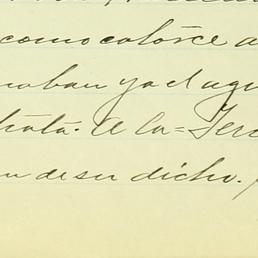 como catorce a
naban ya el agu
trata. A la = Ter
n de su dicho.